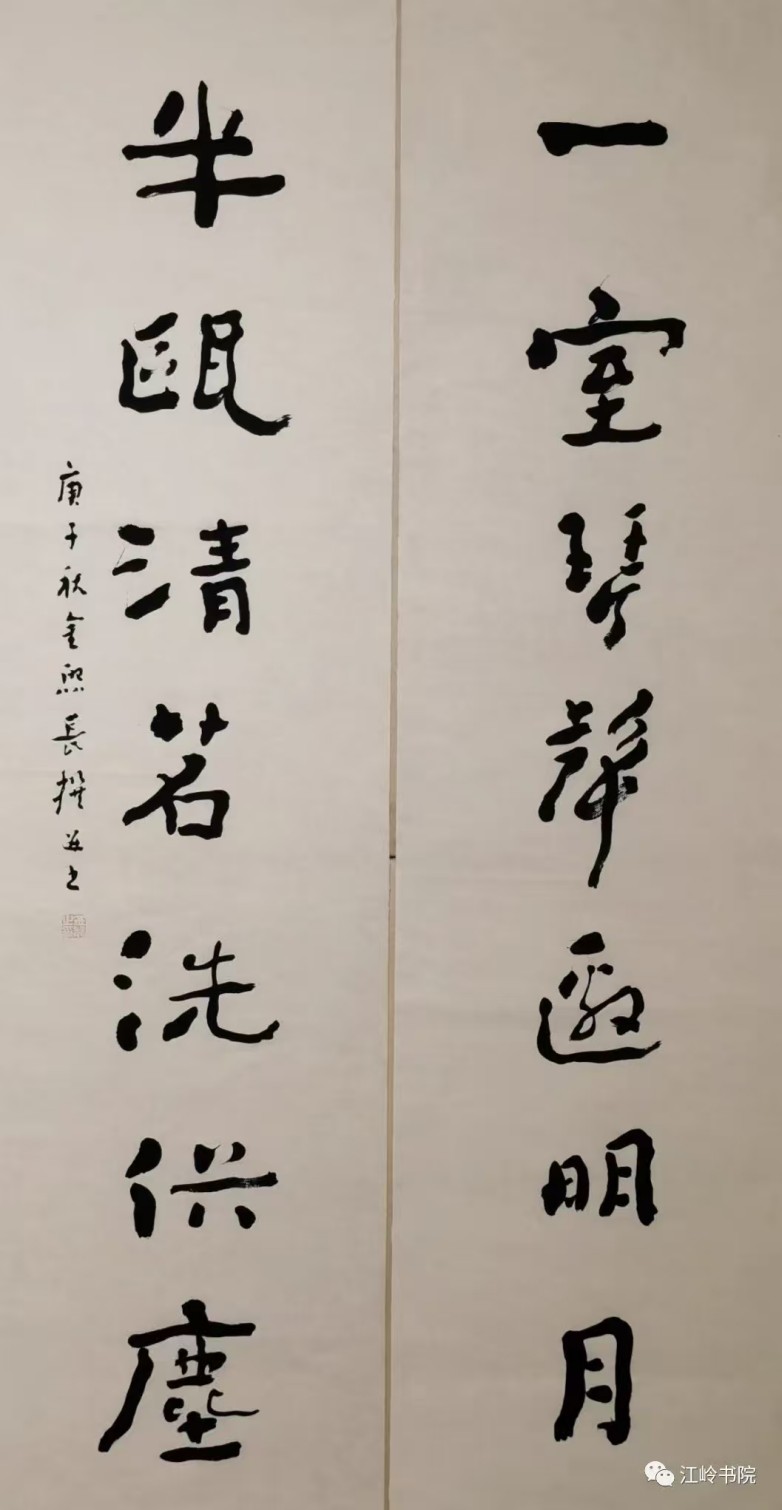 一室琴聲邀明月
半甌清茗洗供塵
庚子秋金熙長撰並书
江岭书院